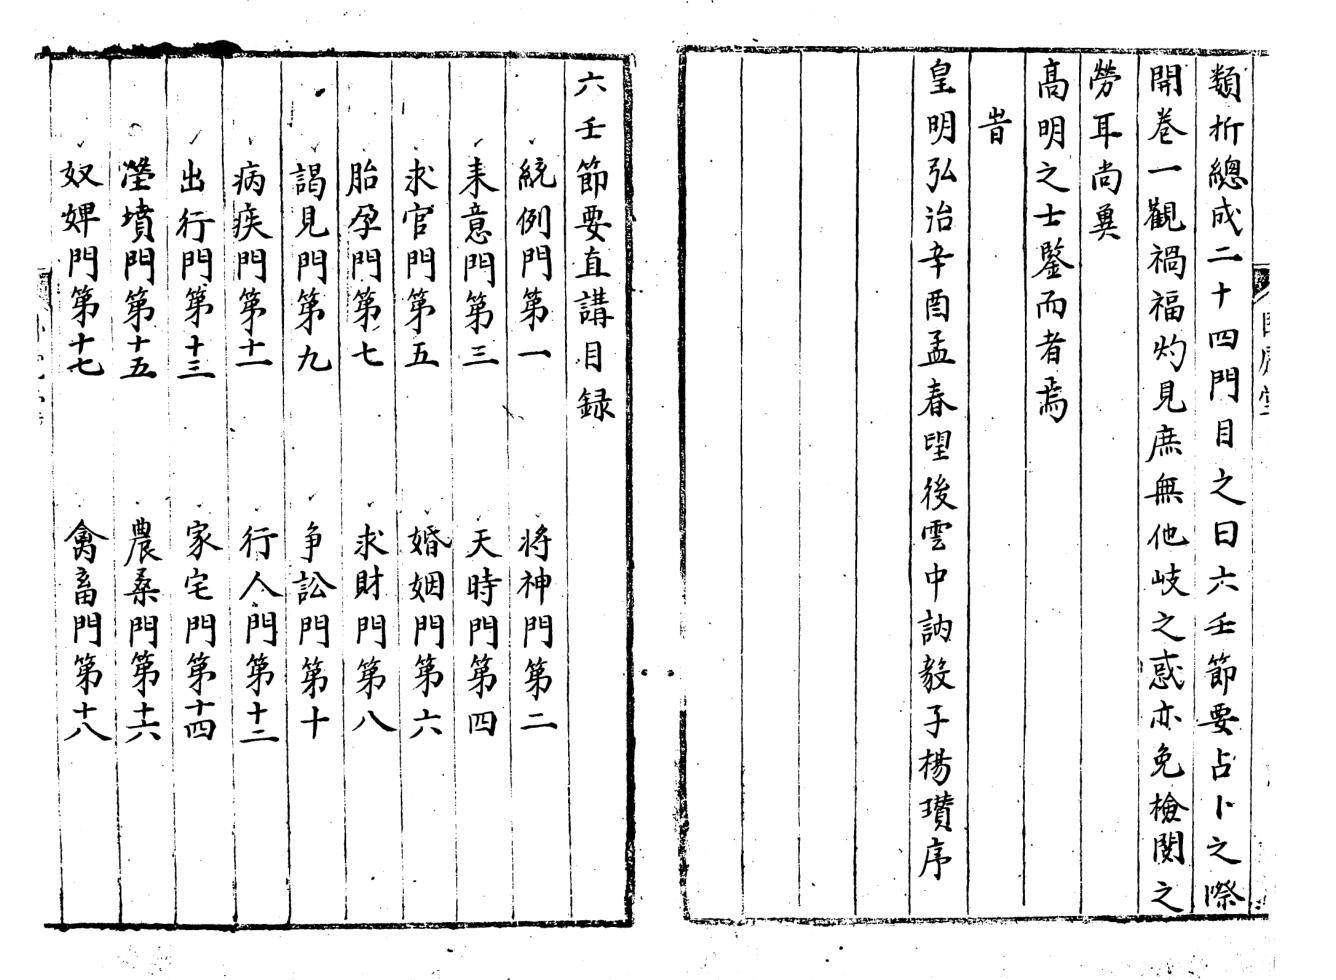 類折總成二十四門目之曰六壬節要占卜之際
開卷一觀禍福灼見庶無他岐之惑亦免檢閱之
勞耳尚兾
高明之士鑒而者焉
旹
皇明弘治辛酉孟春望後雲中訥毅子楊瓚序
六壬節要直講目録
統例門第一 將神門第二
耒意門第三 天時門第四
求官門第五 婚姻門第六
胎孕門第七 求財門第八
謁見門第九 争訟門第十
病疾門第十一 行人門第十二
出行門第十三 家宅門第十四
塋墳門第十五 農桑門第十六
奴婢門第十七 禽畜門第十八